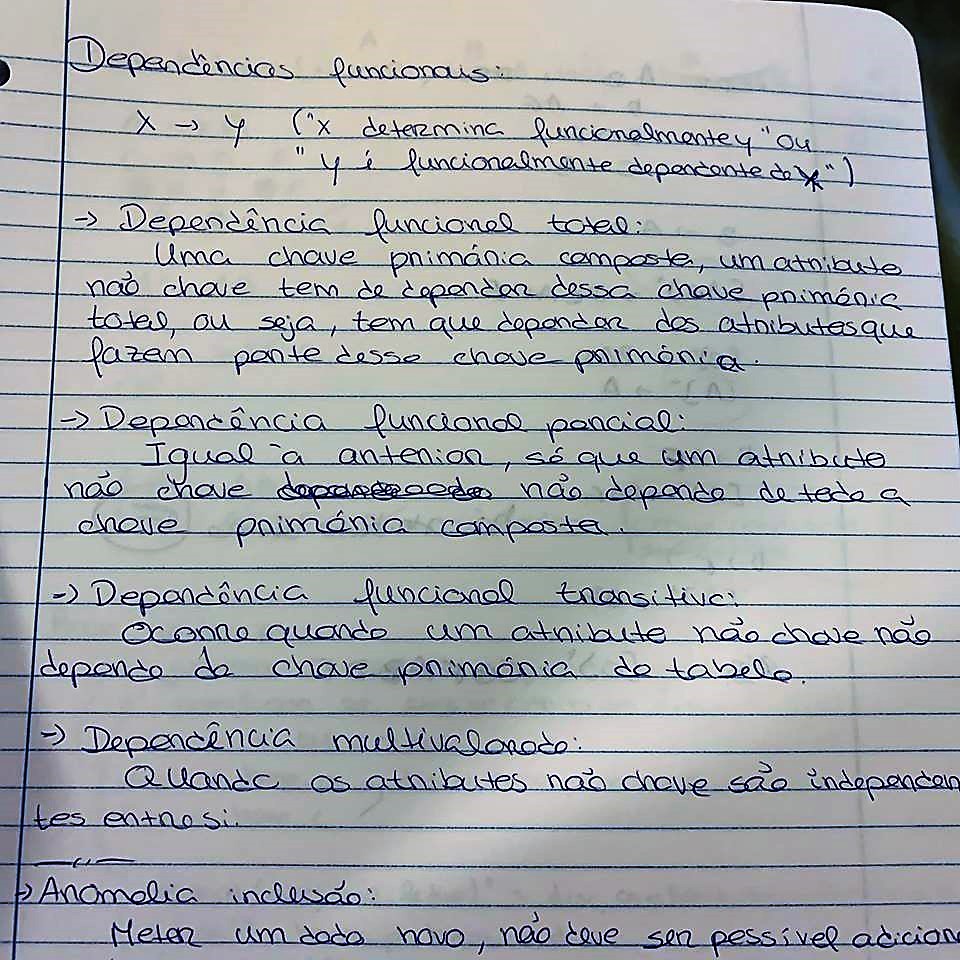 Dependências funcionais:
X → Y ("X determina funcionalmente Y" ou
"Y é funcionalmente dependente de X")
→ Dependência funcional total:
Uma chave primária composta, um atributo
não chave tem de depender dessa chave primária
total, ou seja, tem que depender dos atributos que
fazem parte dessa chave primária.
→ Dependência funcional parcial:
Igual à anterior, só que um atributo
não chave não depende de toda a
chave primária composta.
→ Dependência funcional transitiva:
Ocorre quando um atributo não chave não
depende da chave primária da tabela.
→ Dependência multivalorado:
Quando os atributos não chave são independen
tes entre si.
→ Anomalia inclusão:
Meter um dado novo, não deve ser possível adicion